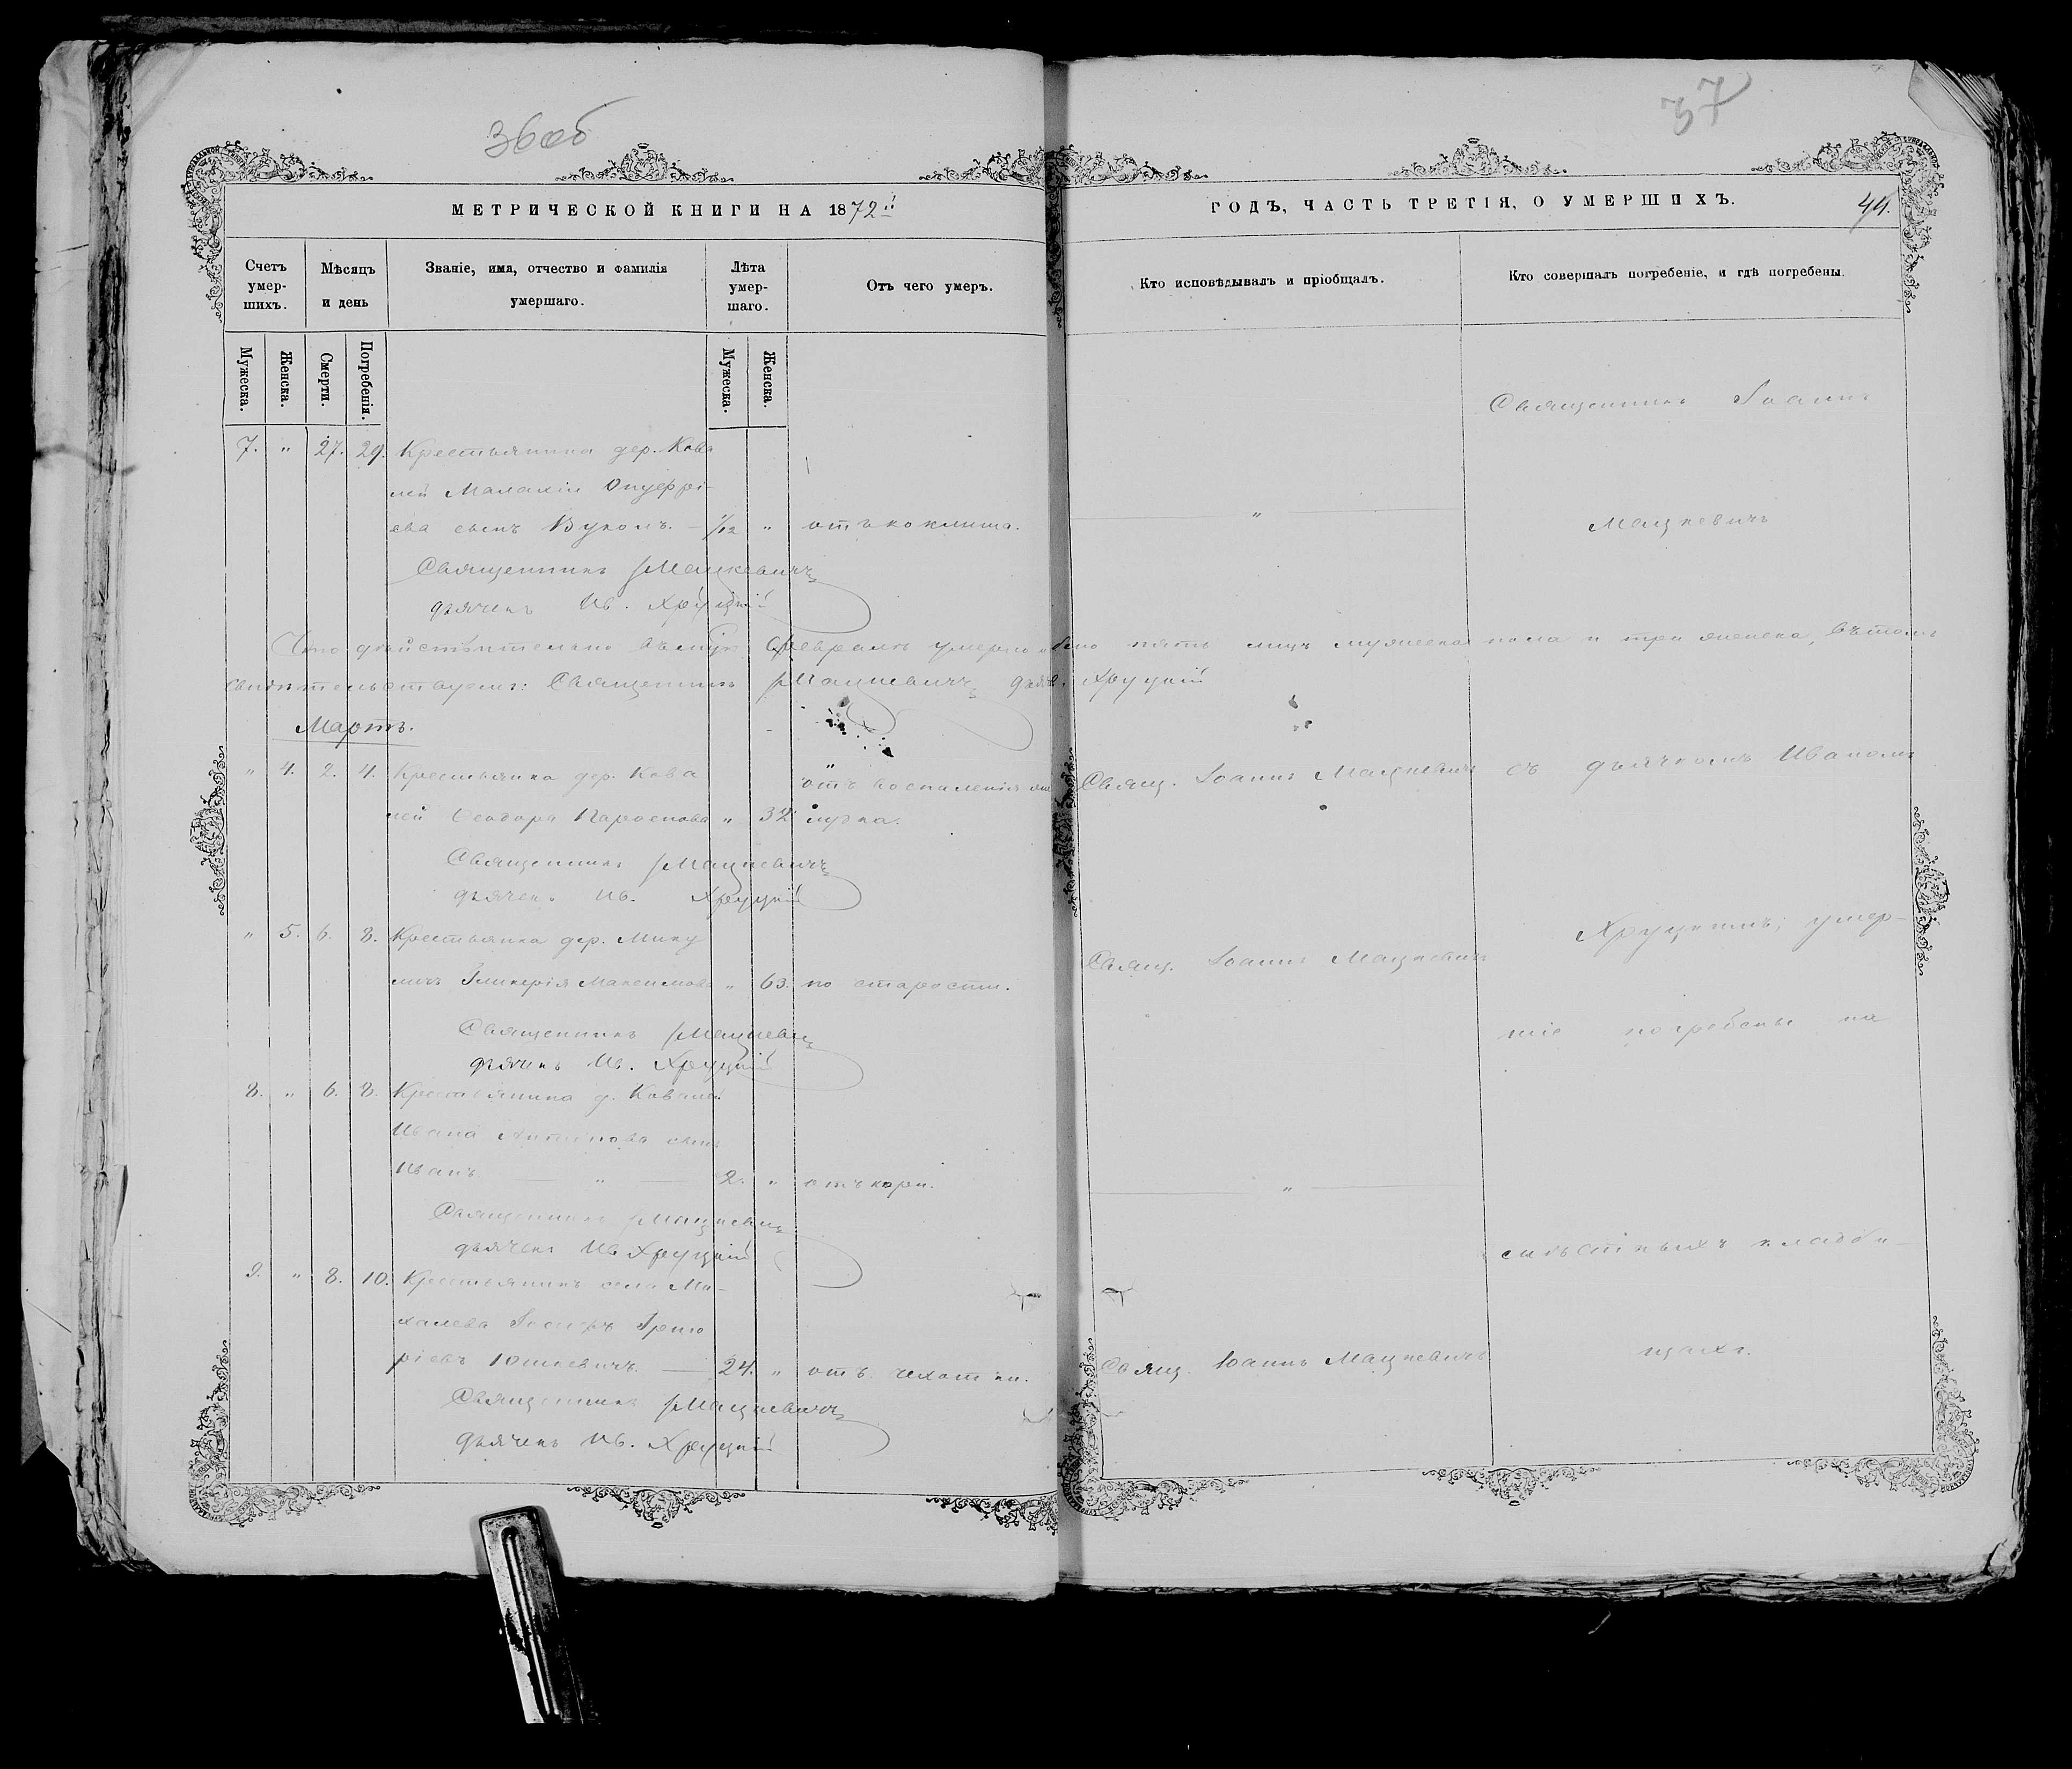 36 об
37
МЕТРИЧЕСКОЙ КНИГИ НА 1872й
ГОДЪ, ЧАСТЬ ТРЕТІЯ, О УМЕРШИХЪ.
44.
Счетъ умер-шихъ.
Мѣсяцъ и день
Званіе, имя, отчество и фамилія умершаго.
Лѣта умер-шаго.
Отъ чего умеръ.
Кто исповѣдывалъ и пріобщалъ.
Кто совершалъ погребеніе, и гдѣ погребены.
Мужеска.
Женска.
Смерти.
Погребенія.
Мужеска.
Женска.
Священникъ Іоаннъ
7. " 27. 29. Крестьянина дер. Кова
лей Малахіи Онуфрі-
ева сынъ Вуколъ. — 1/12 " отъ коклюша. — " — Мацкевичъ
Священникъ Мацкевичъ
дьячекъ Ив. Хруцкій
Что дѣйствительно въ Февралѣ умершо пять лицъ мужеска пола и три женска, въ томъ
свидѣтельствуемъ: Священникъ Мацкевичъ дьяч. Хруцкій
Мартъ.
" 4. 2. 4. Крестьянка дер. Кова отъ воспаленія же Свящ. Іоаннъ Мацкевичъ съ дьячкомъ Иваномъ
лей Ѳеодора " 32 лудка.
Священникъ Мацкевичъ
дьячекъ Ив. Хруцкій
Хруцкимъ; умер-
" 5. 6. 8. Крестьянка дер. Мику Свящ. Іоаннъ Мацкевичъ
личъ Гликерія Максимова " 63. по старости.
шіе погребены на
Священникъ Мацкевичъ
дьячекъ Ив. Хруцкій
8. " 6. 8. Крестьянина д. Ковалей
Ивана Антонова сынъ
Иванъ — " — 2. " отъ кори. — " —
Священникъ Мацкевичъ
дьячекъ Ив. Хруцкій
мѣстныхъ кладби-
9. " 8. 10. Крестьянинъ села Ми-
халева Іосифъ Григо
щахъ.
ріевъ Юшкевичъ. — 24. " отъ чахотки. Свящ. Іоаннъ Мацкевичъ
Священникъ Мацкевичъ
дьячекъ Ив. Хруцкій